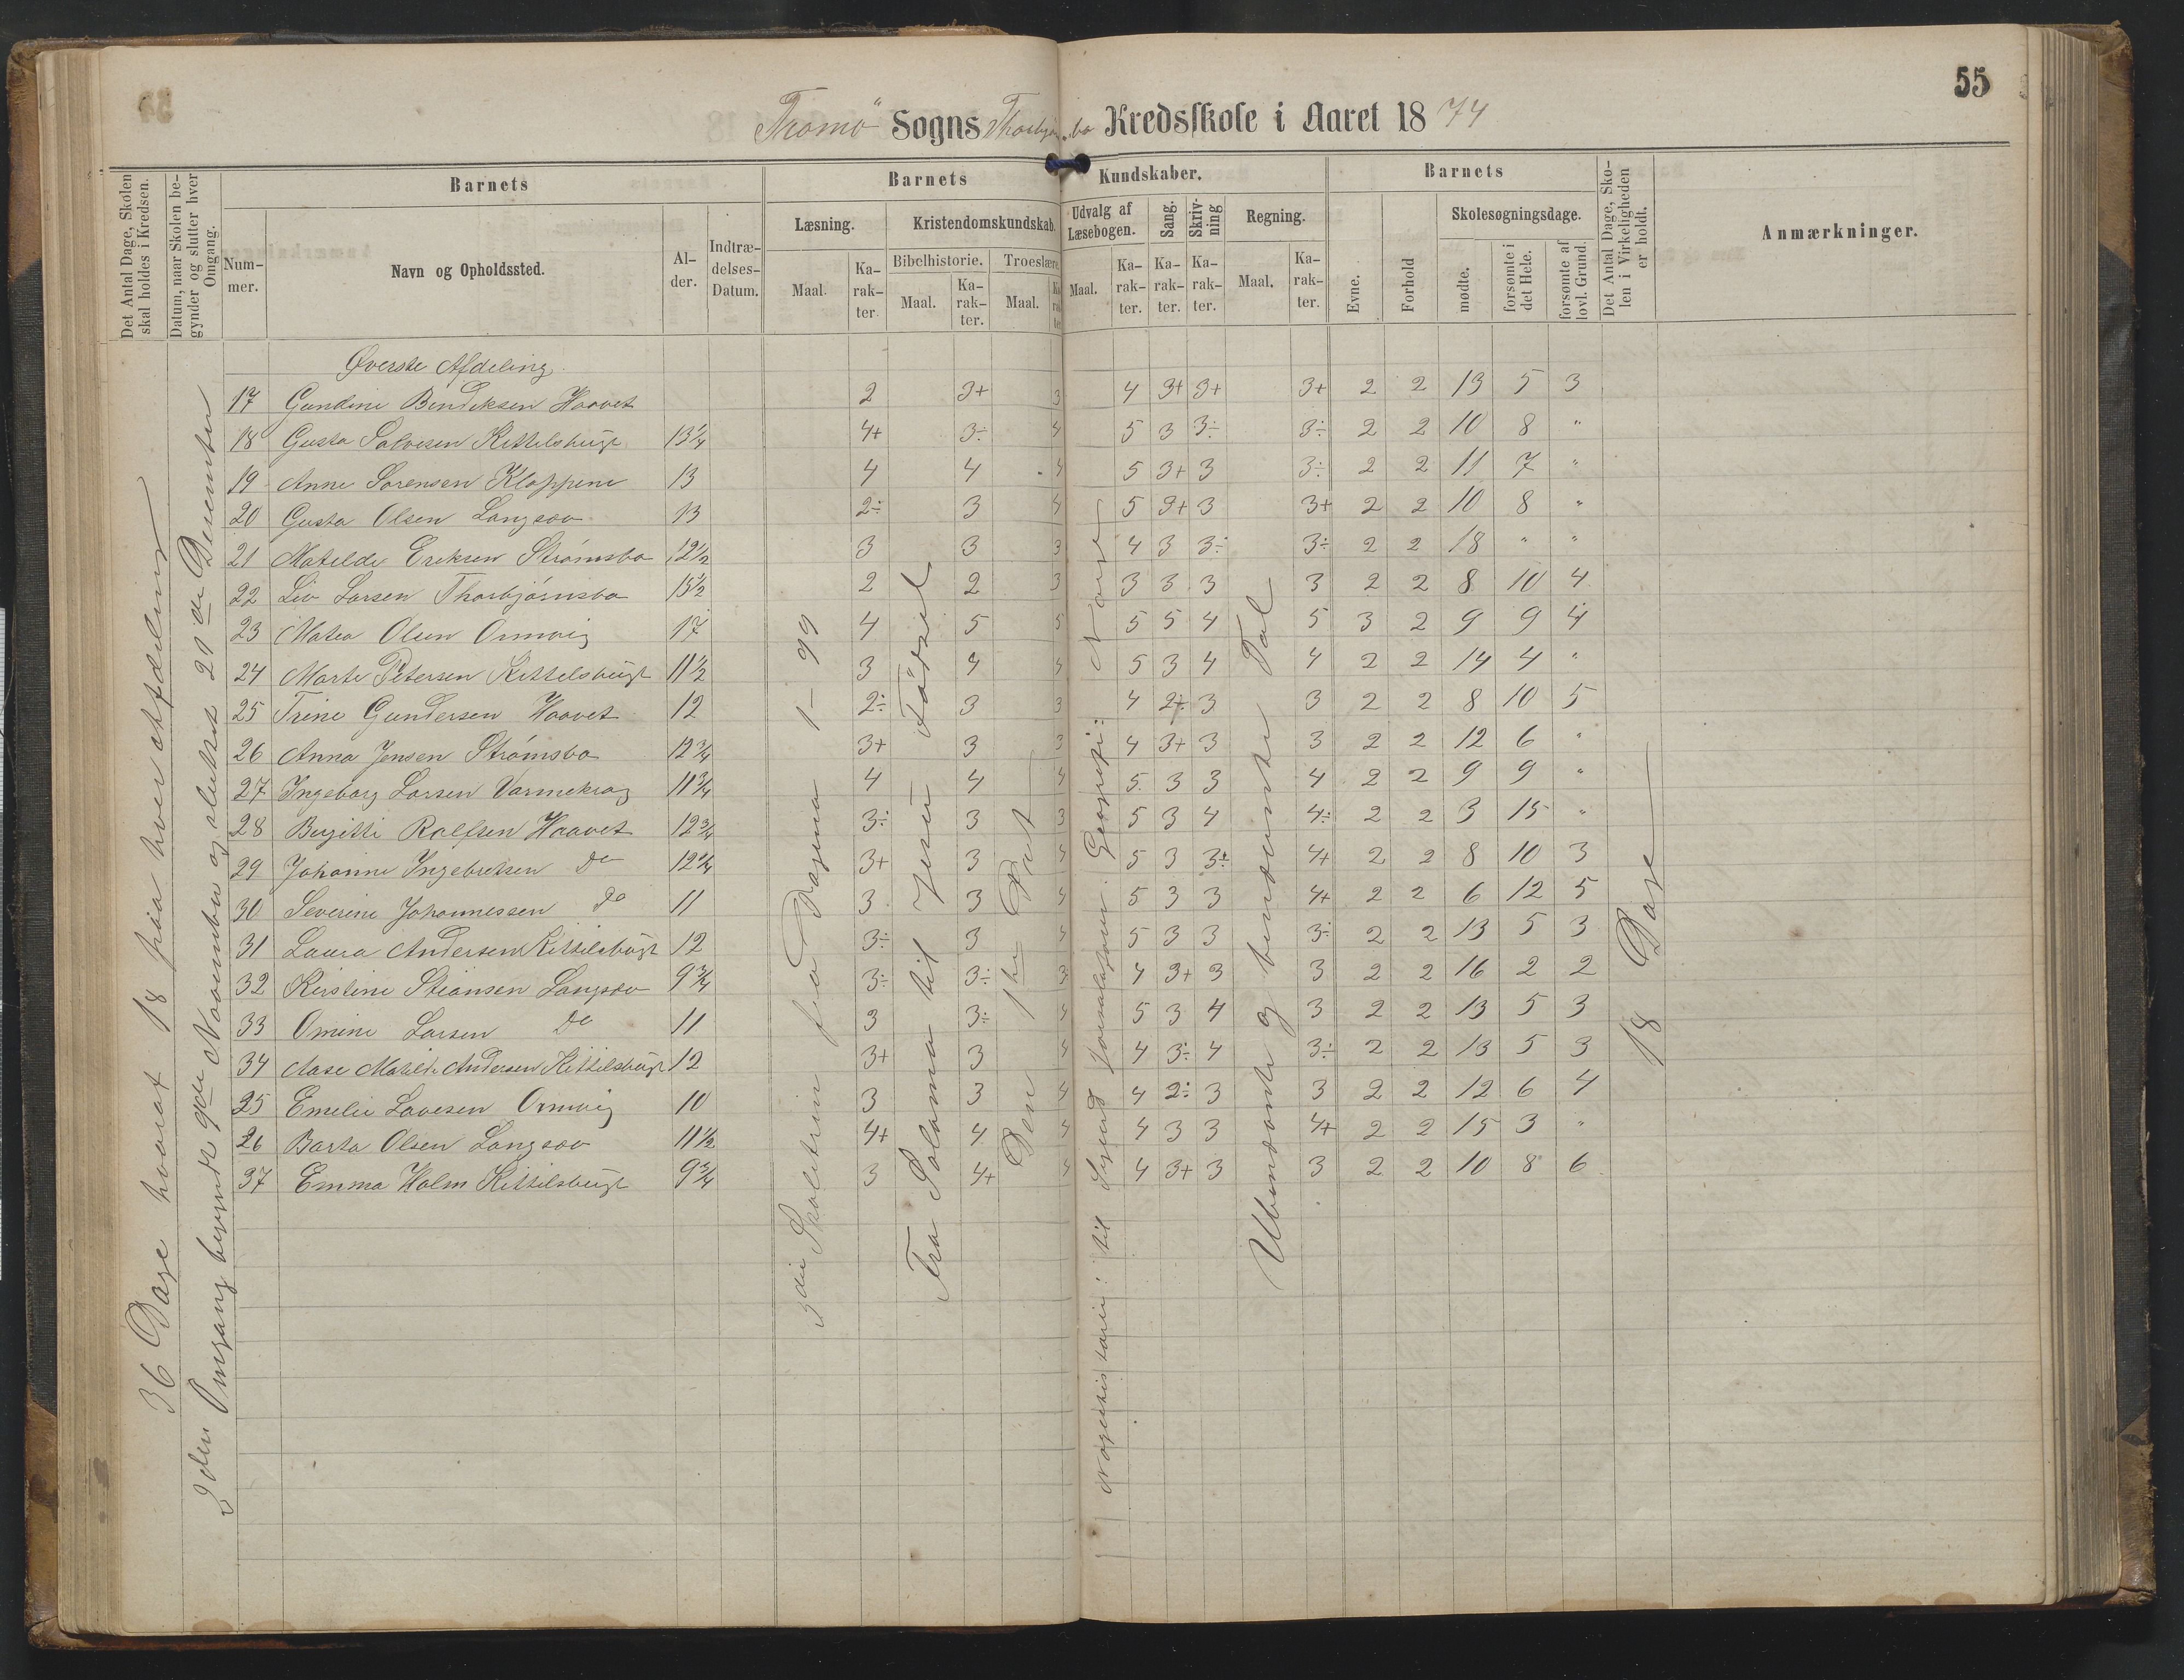 55
Tromø Sogns Thorbjørnsbo Kredsskole i Aaret 1874
Det Antal Dage, Skolen skal holdes i Kredsen.
Datum, naar Skolen begynder og slutter hver Omgang.
Barnets
Nummer.
Navn og Opholdssted.
Alder.
Indtrædelses-Datum.
Barnets Kundskaber.
Læsning.
Maal.
Karakter.
Kristendomskundskab.
Bibelhistorie.
Maal.
Karakter.
Troeslære.
Maal.
Karakter
Udvalg af Læsebogen.
Maal.
Karakter.
Sang.
Karakter.
Skrivning
Karakter.
Regning.
Maal.
Karakter.
Barnets
Evne.
Forhold
Skolesøgningsdage.
mødte.
forsømte i det Hele.
forsømte af lovl. Grund.
Det Antal Dage, Skolen i Virkeligheden er holdt.
Anmærkninger.
Øverste Afdeling
17 Gundine Bendiksen Haavet 2 3+ 3 4 3+ 3+ 3+ 2 2 13 5 3
18 Gusta Salvesen Kittelsbugt 13¼ 4+ 3÷ 4 5 3 3÷ 3÷ 2 2 10 8 "
19 Anne Sørensen Kloppene 13 4 4 4 5 3+ 3 3÷ 2 2 11 7 "
20 Gusta Olsen Langsæv 13 2÷ 3 4 5 3+ 3 3+ 2 2 10 8 "
21 Matilde Eriksen Strømsbo 12½ 3 3 3 4 3 3÷ 3÷ 2 2 18 " "
22 Liv Larsen Thorbjørnsbo 13½ 2 2 3 3 3 3 3 2 2 8 10 4
23 Matea Olsen Ormvig 17 4 5 5 5 5 4 5 3 2 9 9 4
24 Marte Petersen Kittelsbugt 11½ 3 4 4 5 3 4 4 2 2 14 4 "
25 Trine Gundersen Haavet 12 2÷ 3 3 4 2÷ 3 3 2 2 8 10 5
26 Anna Jensen Strømsbo 12¾ 3+ 3 3 4 3+ 3 3 2 2 12 6 "
27 Ingeborg Larsen Varmekrog 11¾ 4 4 4 5 3 3 4 2 2 9 9 "
28 Birgitte Rolfsen Haavet 12¾ 3÷ 3 3 5 3 4 4÷ 2 2 3 15 "
29 Johanne Ingebretsen Do 12¼ 3+ 3 4 5 3 3÷ 4+ 2 2 8 10 3
30 Severine Johannessen Do 11 3 3 4 5 3 3 4+ 2 2 6 12 5
31 Laura Andersen Kittilsbugt 12 3÷ 3 4 5 3 3 3÷ 2 2 13 5 3
32 Kirstine Stiansen Langsæv 9¾ 3÷ 3÷ 3 4 3+ 3 3 2 2 16 2 2
33 Omine Larsen Do 11 3 3÷ 4 5 3 4 3 2 2 13 5 3
34 Aase Matilde Andersen Kittilsbugt 12 3+ 3 4 4 3÷ 4 3÷ 2 2 13 5 3
25 Emelie Lavesen Ormvig 10 3 3 4 4 2÷ 3 3 2 2 12 6 4
26 Barta Olsen Langsæv 11½ 4+ 4 4 4 3 3 4+ 2 2 15 3 "
37 Emma Holm Kittilsbugt 9¾ 3 4+ 4 4 3+ 3 3 2 2 10 8 6
36 Dage hvoraf 18 paa hver Afdeling
2den Omgang begyndt 9de November og sluttet 21de December
3die Skoletrin fra Pagina 1–99
Fra Salomo til Jesu Fødsel
Den 1te Part
til Geografi: Norge
Ubenævnte og benævnte Tal
18 Dage